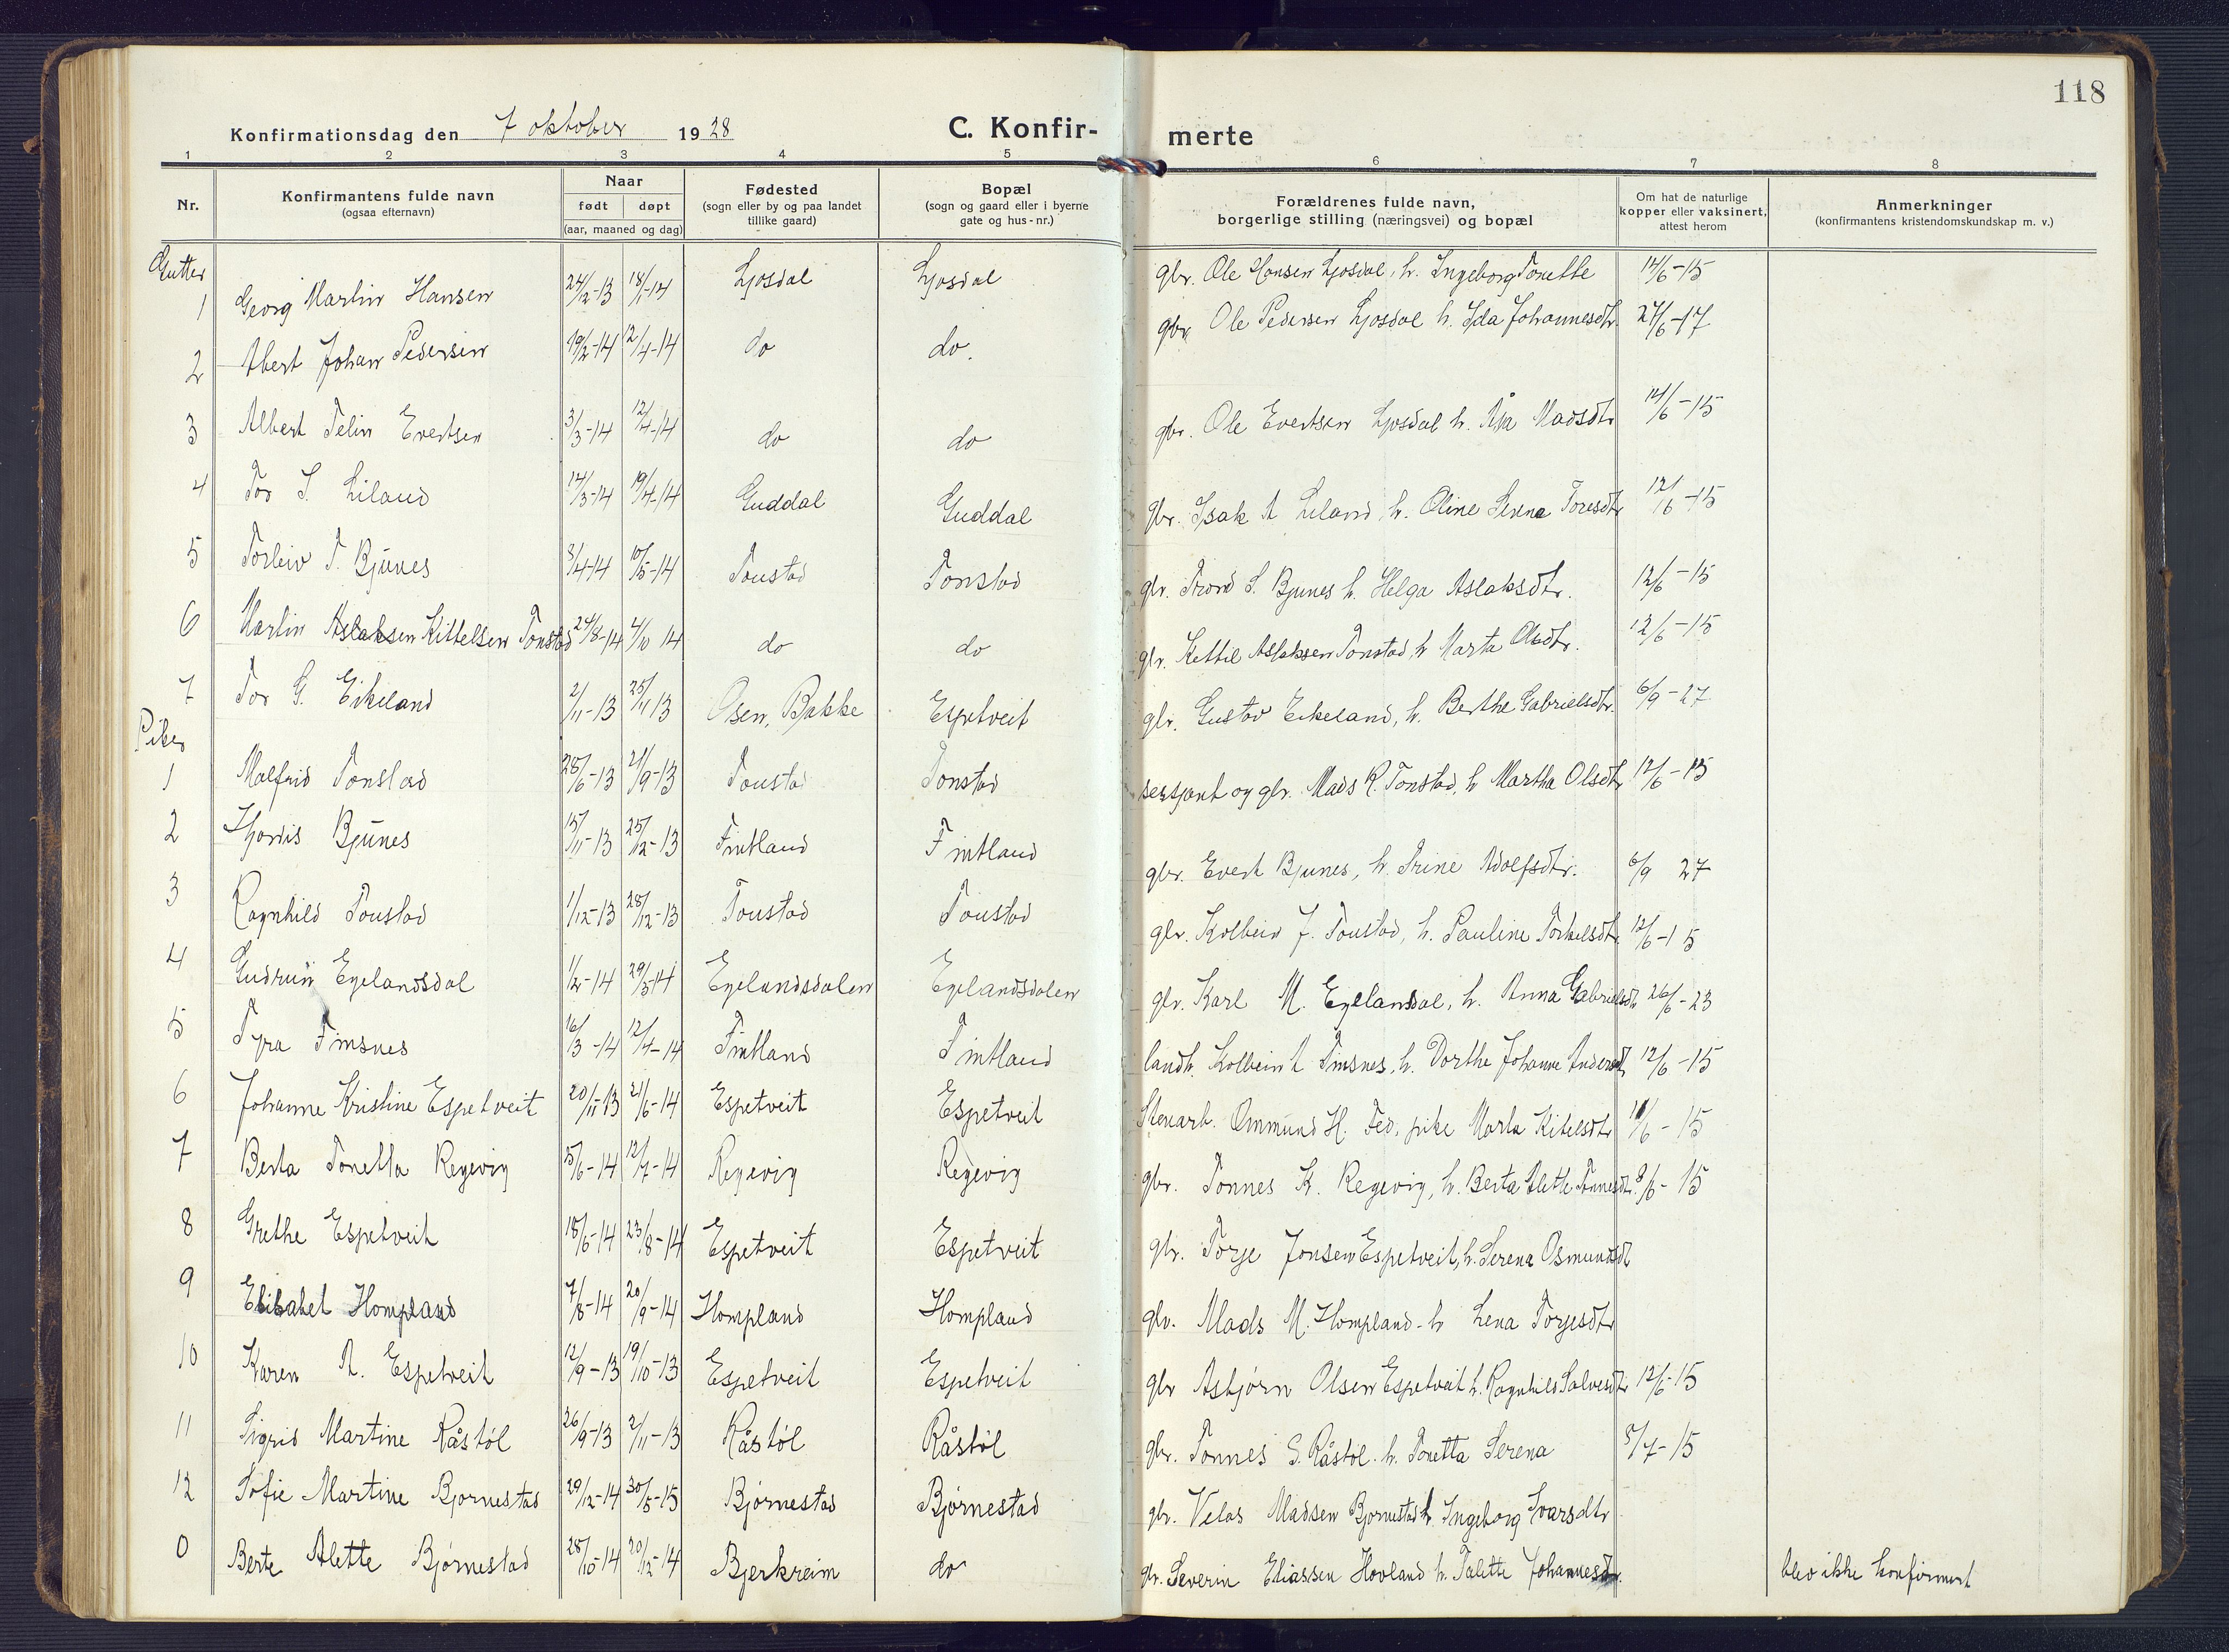 118
Konfirmationsdag den 7 oktober 1928 C. Konfir- merte
1 2 3 4 5 6 7 8
Nr. Konfirmantens fulde navn (ogsaa efternavn) Naar født døpt (aar, maaned og dag) Fødested (sogn eller by og paa landet tillike gaard) Bopæl (sogn og gaard eller i byerne gate og hus-nr.) Forældrenes fulde navn, borgerlige stilling (næringsvei) og bopæl Om hat de naturlige kopper eller vaksinert, attest herom Anmerkninger (konfirmantens kristendomskundskap m. v.)
Gutter
1 Georg Martin Hansen 24/12-13 18/1-14 Ljosdal Ljosdal gbr. Ole Hansen Ljosdal, h. Ingeborg Tonette 14/6-15
2 Abert Johan Pedersen 19/2-14 12/4-14 do do. gbr. Ole Pedersen Ljosdal h. Ida Johannesdtr. 27/6-17
3 Albert Telin Evertsen 3/3-14 12/4-14 do do gbr. Ole Evertsen Ljosdal h. Madsdtr 14/6-15
4 Tor I. Liland 14/3-14 19/4-14 Guddal Guddal gbr. Isak A Liland, h. Oline Serina Toresdtr 12/6-15
5 Torleiv T. Bjunes 3/4-14 10/5-14 Tonstad Tonstad gbr. Trond S. Bjunes h. Helga Aslaksdtr. 12/6-15
6 Martin Aslaksen Kittelsen Tonstad 24/8-14 4/10 14 do do gbr. Kettil Aslaksen Tonstad, h Marta Olsdtr. 12/6-15
7 Tor G. Eikeland 2/11-13 25/11 13 Osen, Bakke Espetveit gbr. Gustav Eikeland, h. Berthe Gabrielsdtr. 6/9-27
Piker
1 Malfrid Tonstad 28/6-13 21/9-13 Tonstad Tonstad sersjant og gbr. Mads R. Tonstad, h Martha Olsdtr 12/6-15
2 Hjordis Bjunes 15/11-13 25/12-13 Fintland Fintland gbr. Evert Bjunes, h. Trine Adolfsdtr. 6/9 27
3 Ragnhild Tonstad 1/12-13 28/12-13 Tonstad Tonstad gbr. Kolbein J. Tonstad, h. Pauline Torkelsdtr. 12/6-15
4 Gudrun Egelandsdal 1/2-14 29/3-14 Egelandsdalen Egelandsdalen gbr. Karl M. Egelandsdal, h. Anna Gabrielsdtr 26/6-23
5 Tyra Finsnes 16/3-14 12/4-14 Fintland Fintland landh. Kolbein Finsnes, h. Dorthe Johanne Andersdt 12/6-15
6 Johanne Kristine Espetveit 20/11-13 21/6-14 Espetveit Espetveit Stenarb. Ommund H. Fed, pike Marta Kitelsdtr 11/6-15
7 Berta Tonetta Regevig 5/6-14 12/7-14 Regevig Regevig gbr. Tonnes K. Regevig, h. Berta Alette Tonnesdtr. 8/6-15
8 Grethe Espetveit 18/6-14 23/8-14 Espetveit Espetveit gbr. Torje Jonsen Espetveit, h. Serena Osmundsdt
9 Elisabet Hompland 7/8-14 20/9-14 Hompland Hompland gbr. Mads M. Hompland - h Lena Torjesdtr
10 Karen A. Espetveit 12/9-13 19/10-13 Espetveit Espetveit gbr Asbjørn Olsen Espetveit h. Ragnhild Salvesdtr 12/6-15
11 Sigrid Martine Råstøl 26/9-13 2/11-13 Råstøl Råstøl gbr. Tonnes S. Råstøl. h. Tonetta Serena 5/7-15
12 Sofie Martine Bjornestad 29/12-14 30/5-15 Bjørnestad Bjørnestad gbr. Velas Madsen Bjornestad h. Ingeborg Ivarsdtr
0 Berte Alette Bjørnestad 28/10-14 20/12-14 Bjerkreim do gbr. Severin Eliassen Hovland h. Talette Johannesdtr. blev ikke konfirmert